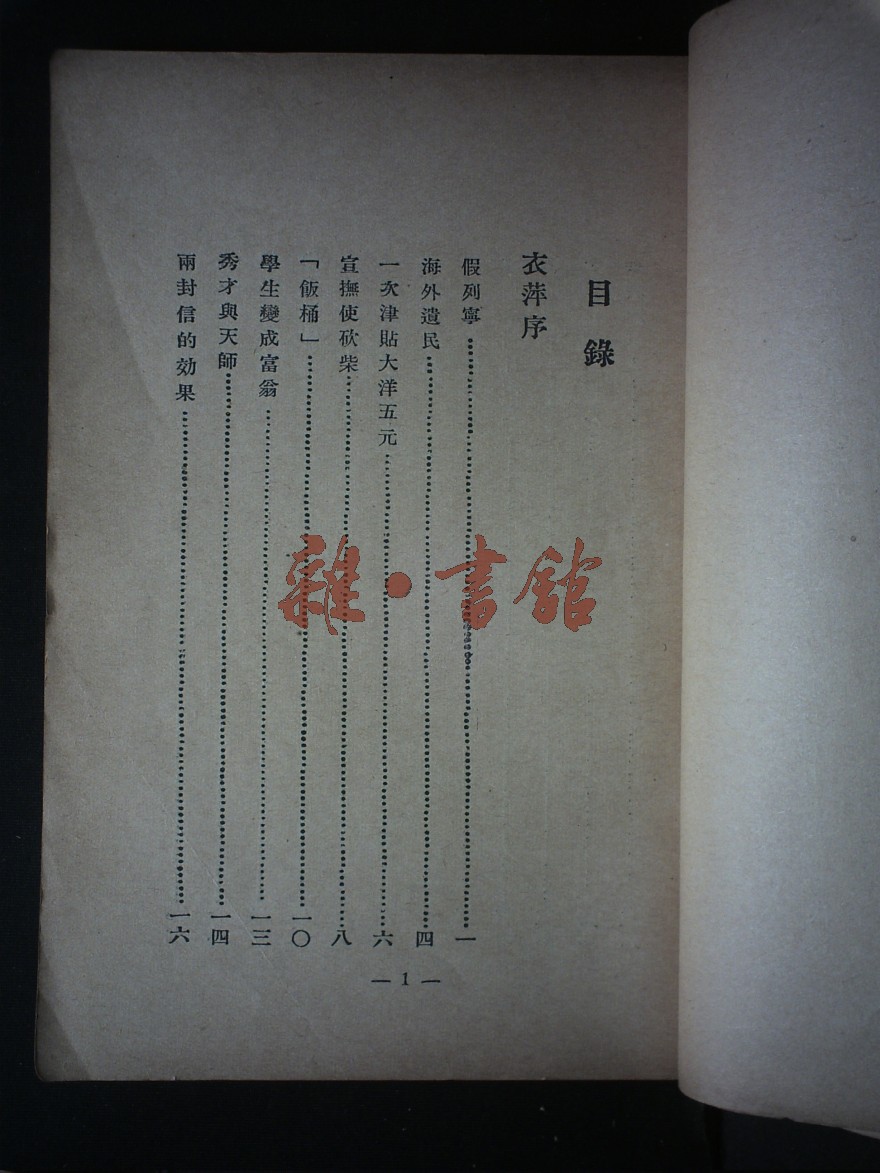 目錄
衣萍序
假列寧……一
海外遺民……四
一次津貼大洋五元……六
宣撫使砍柴……八
「飯桶」……一〇
學生變成富翁……一三
秀才與天師……一四
兩封信的効果……一六
— 1 —
雜·書舘